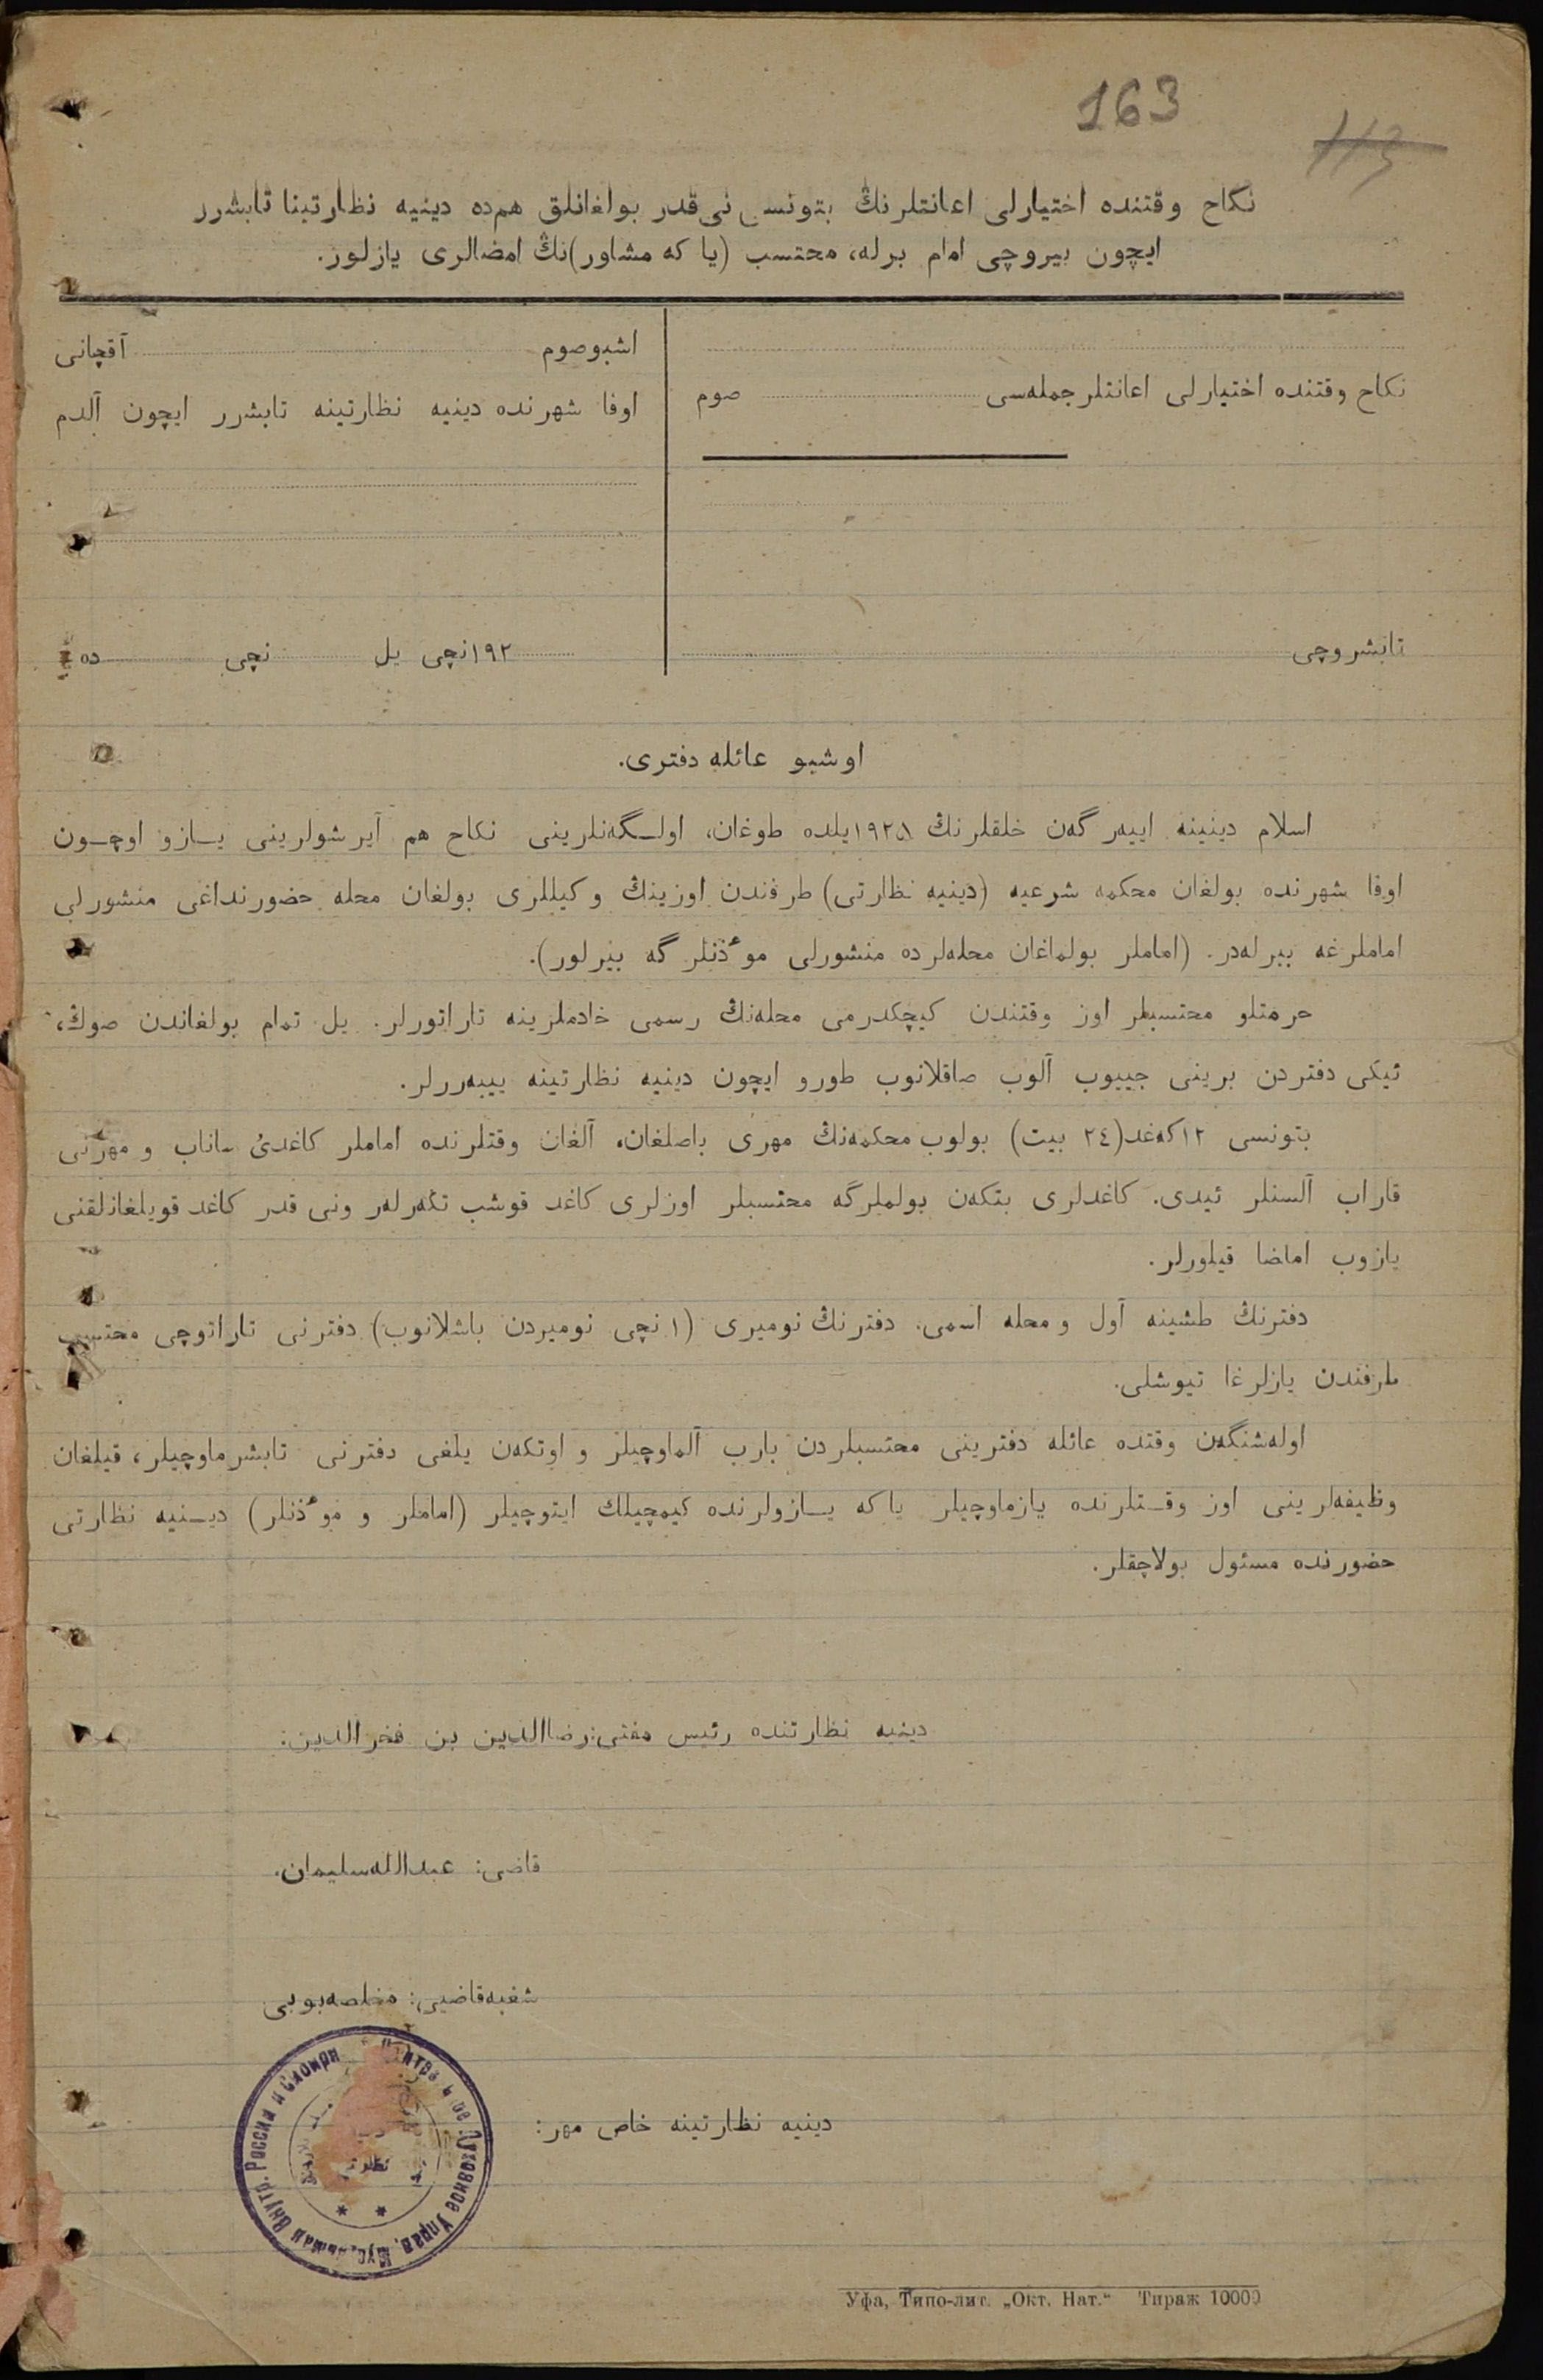 163
113
نكاح وقتنده اختيارلى اعانتلرنڭ بتونسى نى‌قدر بولغانلق هم‌ده دينيه نظارتينا تابشرر
ايچون بيروچى امام برله، محتسب (يا كه مشاور)نڭ امضالرى يازلور.
نكاح وقتنده اختيارلى اعانتلر جمله‌سى صوم
تابشروچى
اشبو صوم آقچانى
اوفا شهرنده دينيه نظارتينه تابشرر ايچون آلدم
١٩٢ نچى يل نچى ده
اوشبو عائله دفترى.
اسلام دينينه اييه‌رگه‌ن خلقلرنڭ ١٩٢٥يلده طوغان، اولـگه‌نلرينى نكاح هم آيرشولرينى يـازو اوچـون
اوفا شهرنده بولغان محكمه شرعيه (دينيه نظارتى) طرفندن اوزينڭ وكيللرى بولغان محله حضورنداغى منشورلى
اماملرغه بيرله‌در. (اماملر بولماغان محله‌لرده منشورلى موٴذنلرگه بيرلور).
حرمتلو محتسبلر اوز وقتندن كيچكدرمى محله‌نڭ رسمى خادملرينه تاراتورلر. يل تمام بولغاندن صوڭ،
ئيكى دفتردن برينى جييوب آلوب صاقلانوب طورو ايچون دينيه نظارتينه ييبه‌ررلر.
بتونسى ١٢كه‌غد(٢٤ بيت) بولوب محكمه‌نڭ مهرى باصلغان، آلغان وقتلرنده اماملر كاغدئ ساناب و مهرنى
قاراب آلسنلر ئيدى. كاغدلرى بتكه‌ن بولملرگه محتسبلر اوزلرى كاغد قوشب تكه‌رله‌ر ونى قدر كاغد قويلغانلقنى
يازوب اماضا قيلورلر.
دفترنڭ طشينه آول و محله اسمى، دفترنڭ نوميرى (١ نچى نوميردن باشلانوب) دفترنى تاراتوچى محتسب
طرفندن يازلرغا تيوشلى.
اوله‌شنگه‌ن وقتده عائله دفترينى محتسبلردن بارب آلماوچيلر و اوتكه‌ن يلغى دفترنى تابشرماوچيلر، قيلغان
وظيفه‌لرينى اوز وقـتلرنده يازماوچيلر ياكه يـازولرنده كيمچيلك ايتوچيلر (اماملر و موٴذنلر) ديـنيه نظارتى
حضورنده مسئول بولاچقلر.
دينيه نظارتنده رئيس مفتى: رضاالدين بن فخرالدين:
قاضى: عبدالله‌سليمان.
شعبه‌قاضيى: مخلصه‌بوبى
دينيه نظارتينه خاص مهر:
Духовное Управ. Мусульман Внутр. России и Сибири
Уфа, Типо-лит. „Окт. Нат.“ Тираж 10000